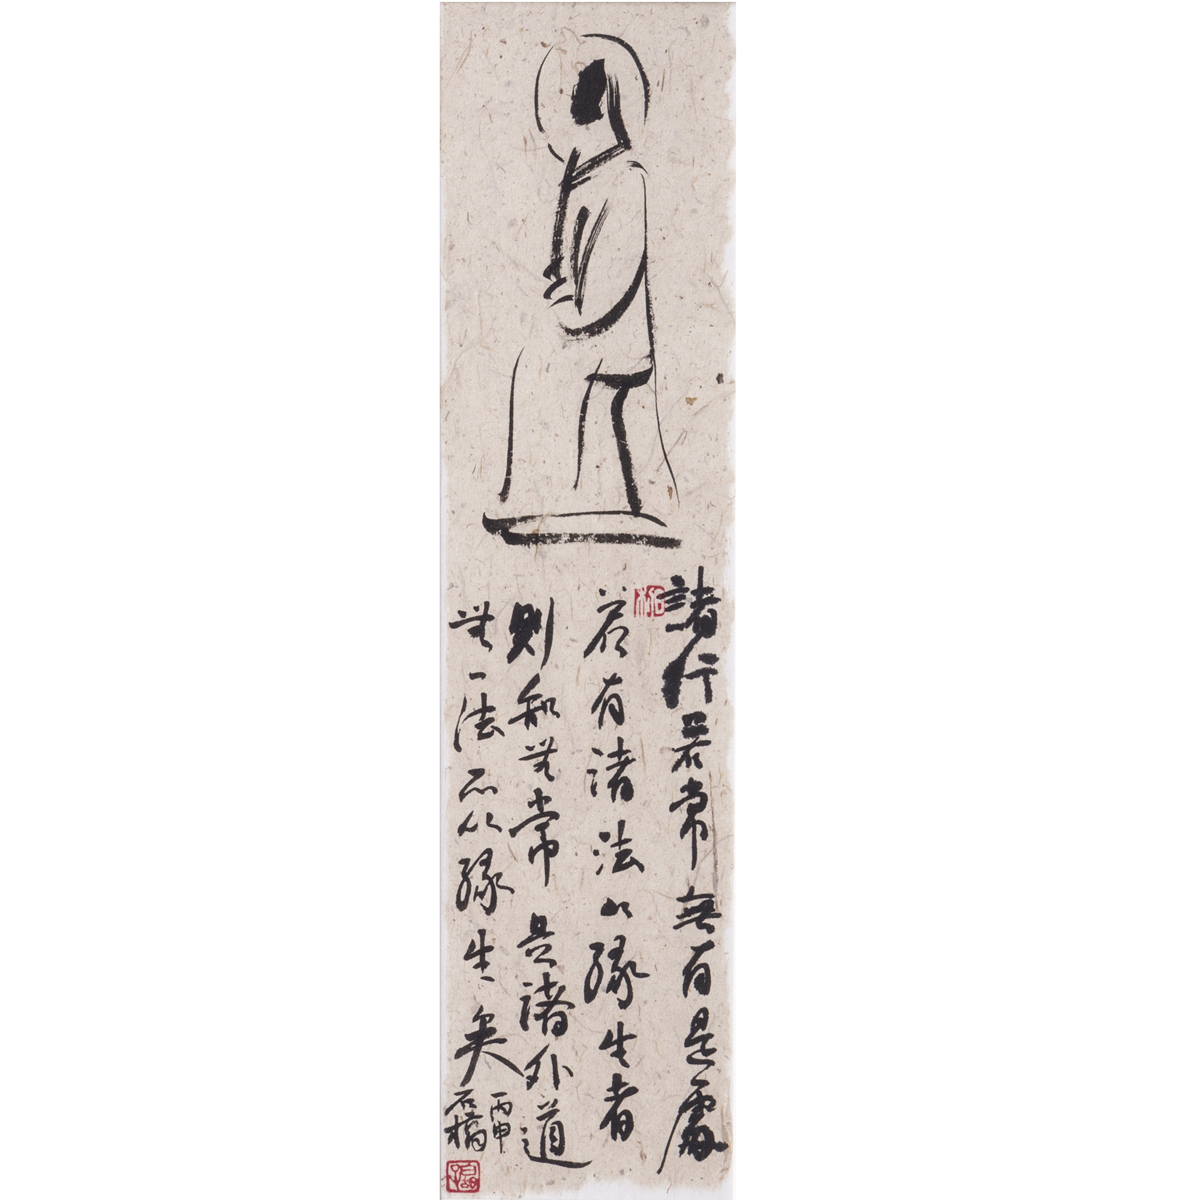 諸行若常無有是處
若有諸法以緣生者
則知無常是諸外道
無一法不以緣生矣
丙申
石橋